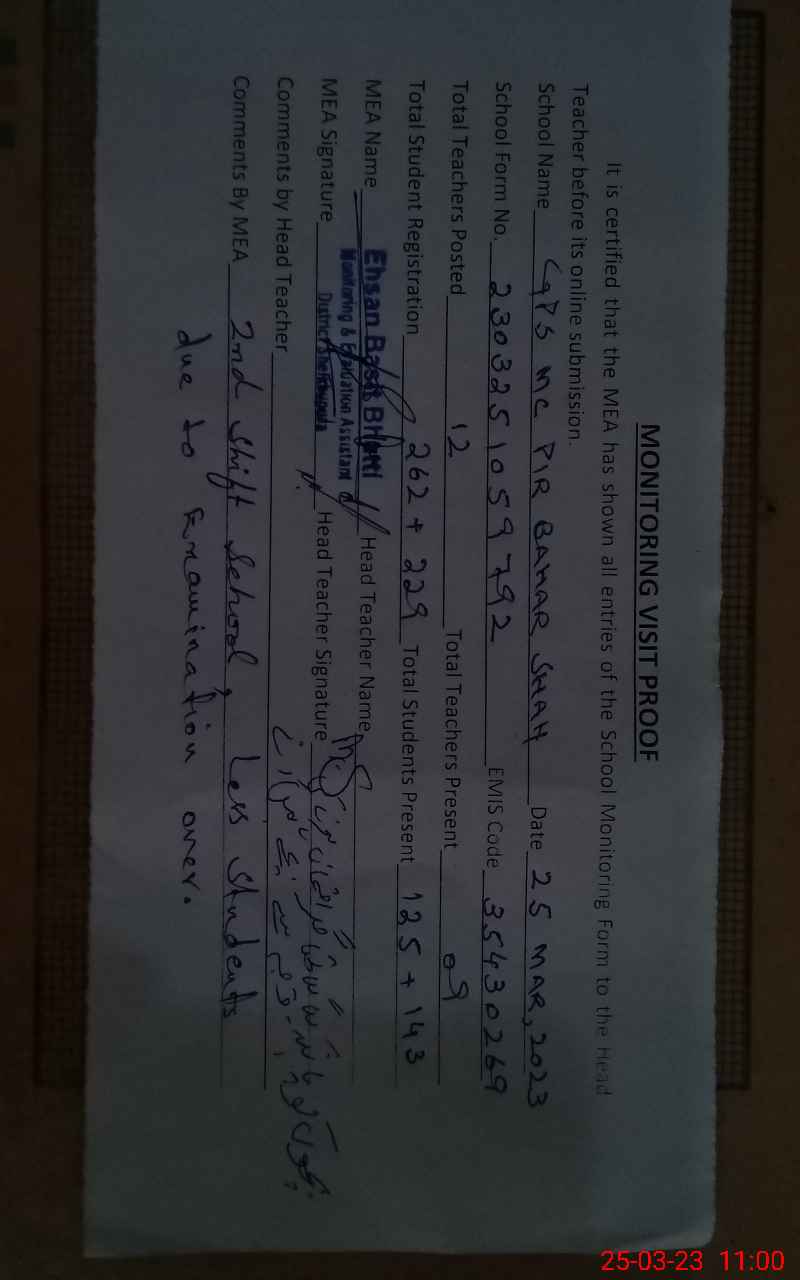 MONITORING VISIT PROOF
It is certified that the MEA has shown all entries of the School Monitoring Form to the Head
Teacher before its online submission.
School Name GPS MC PIR BAHAR SHAH Date 25 MAR, 2023
School Form No. 2303251059792 EMIS Code 35430269
Total Teachers Posted 12 Total Teachers Present 09
Total Student Registration 262 + 229 Total Students Present 125 + 143
MEA Name Ehsan Bhatti Head Teacher Name
Monitoring & Evaluation Assistant
MEA Signature District Sheikhupura Head Teacher Signature
Comments by Head Teacher
Comments By MEA 2nd shift School, Less Students
due to Examination over.
25-03-23 11:00